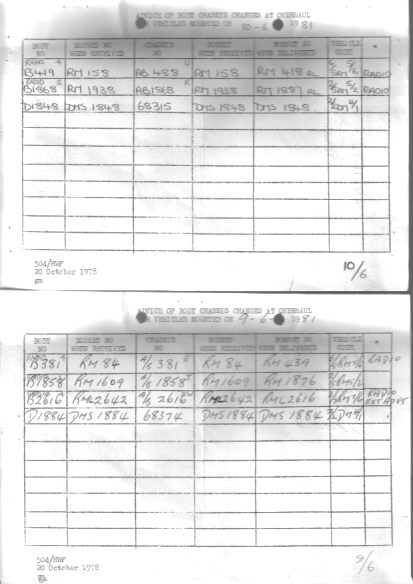 ADVICE OF BODY CHASSIS CHANGES AT OVERHAUL
VEHICLES MOUNTED ON 10-6 1981
BODY NO BONNET NO WHEN RECEIVED CHASSIS NO BONNET WHEN RECEIVED BONNET NO WHEN DELIVERED VEHICLE CODE
RADIO 4 U
B419 RM 158 AB 488 RM 158 RM 418 RL 5RM 5/6 RADIO
RADIO 2 R
B1868 RM 1938 AB1868 RM 1938 RM 1887 RL 5RM 5/2 RADIO
D1848 DMS 1848 68315 DMS 1848 DMS 1848 2/2DM 4/1
504/HWP
20 October 1978
10/6
ADVICE OF BODY CHASSIS CHANGES AT OVERHAUL
VEHICLES MOUNTED ON 9-6- 1981
BODY NO BONNET NO WHEN RECEIVED CHASSIS NO BONNET WHEN RECEIVED BONNET NO WHEN DELIVERED VEHICLE CODE
B381 RM 84 A/B 381 RM 84 RM 439 RADIO
B1858 RM 1609 A/B 1858 RM 1609 RM 1876
B2616 RML 2642 A/B 2616 RML 2642 RML 2616 RADIO EXT ADVT
D1884 DMS 1884 68374 DMS 1884 DMS 1884
504/HWP
20 October 1978
9/6